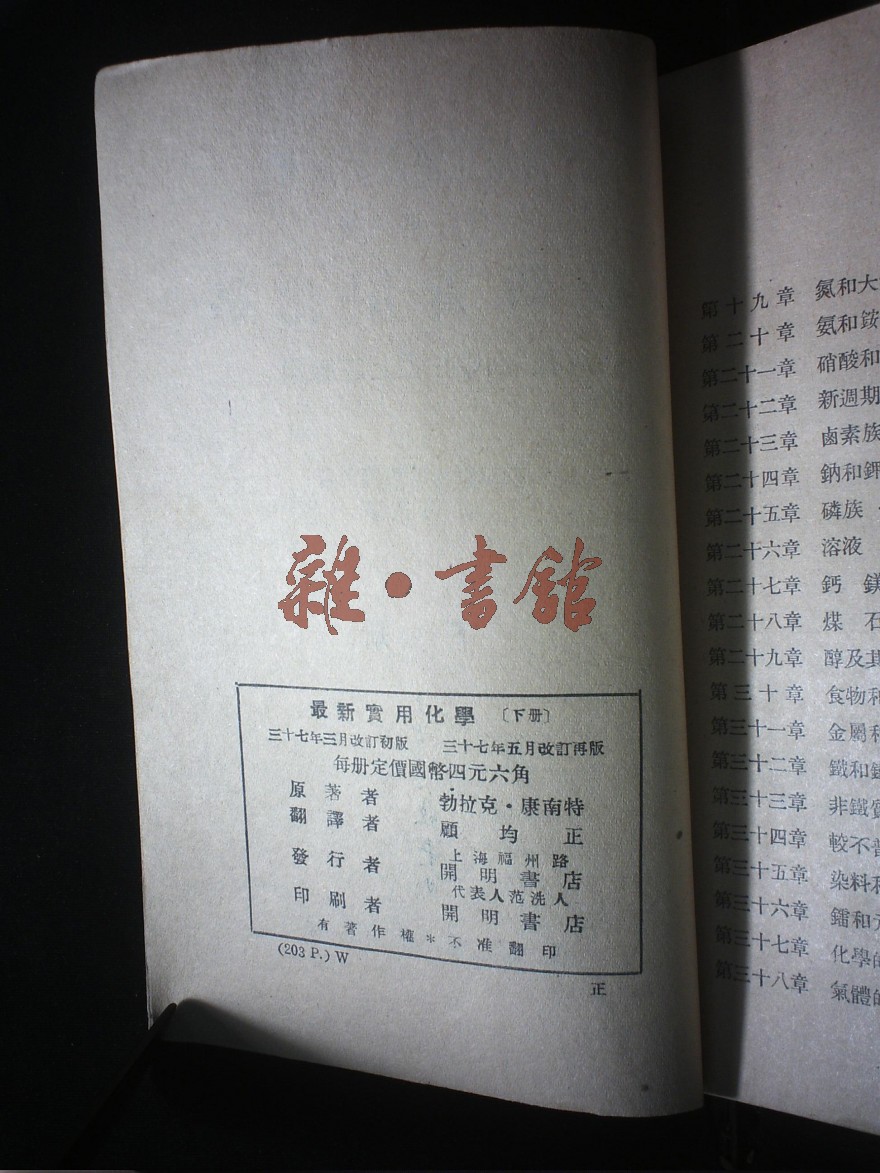 雜·書館
最新實用化學〔下册〕
三十七年三月改訂初版 三十七年五月改訂再版
每册定價國幣四元六角
原著者 勃拉克·康南特
翻譯者 顧均正
發行者 上海福州路
開明書店
代表人范洗人
印刷者 開明書店
有著作權*不准翻印
(203 P.) W
正
第十九章 氮和大
第二十章 氨和銨
第二十一章 硝酸和
第二十二章 新週期
第二十三章 鹵素族
第二十四章 鈉和鉀
第二十五章 磷族
第二十六章 溶液
第二十七章 鈣 鎂
第二十八章 煤 石
第二十九章 醇及其
第三十章 食物和
第三十一章 金屬和
第三十二章 鐵和
第三十三章 非鐵
第三十四章 較不普
第三十五章 染料和
第三十六章 鐳和
第三十七章 化學的
第三十八章 氣體的